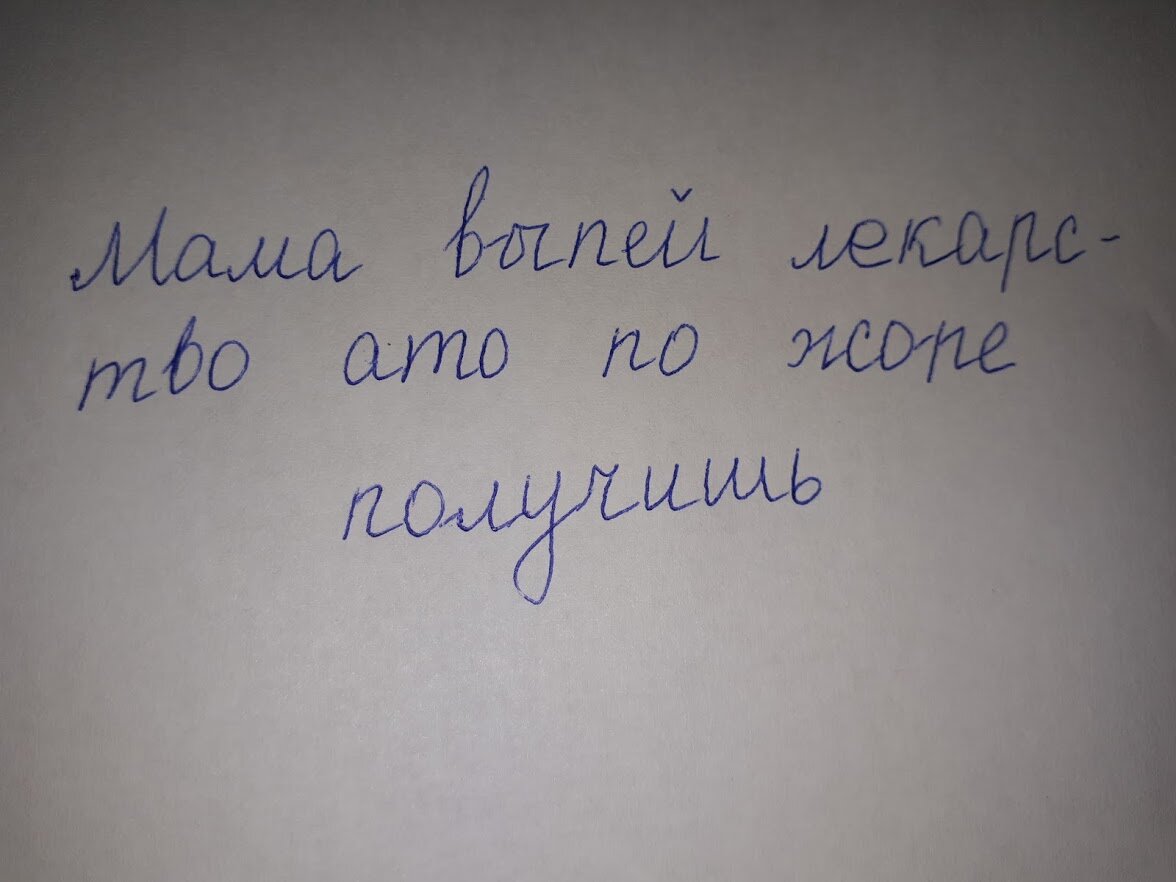 Мама выпей лекарс-
тво ато по жопе
получишь